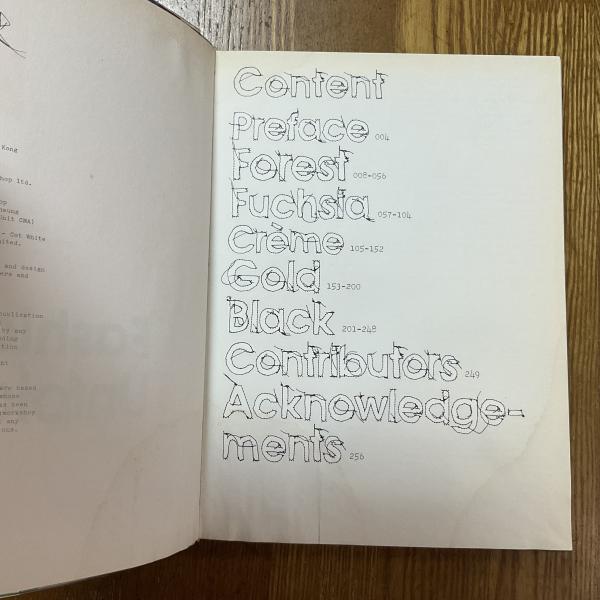 Kong
hop ltd.
op
Unit GMA)
- Cat White
ited.
and design
ers and
publication
by any
ding
ition
nt
are based
phone
as been
gworkshop
any
ons.
Content
Preface 004
Forest 008-056
Fuchsia 057-104
Crème 105-152
Gold 153-200
Black 201-248
Contributors 249
Acknowledge-
ments 256